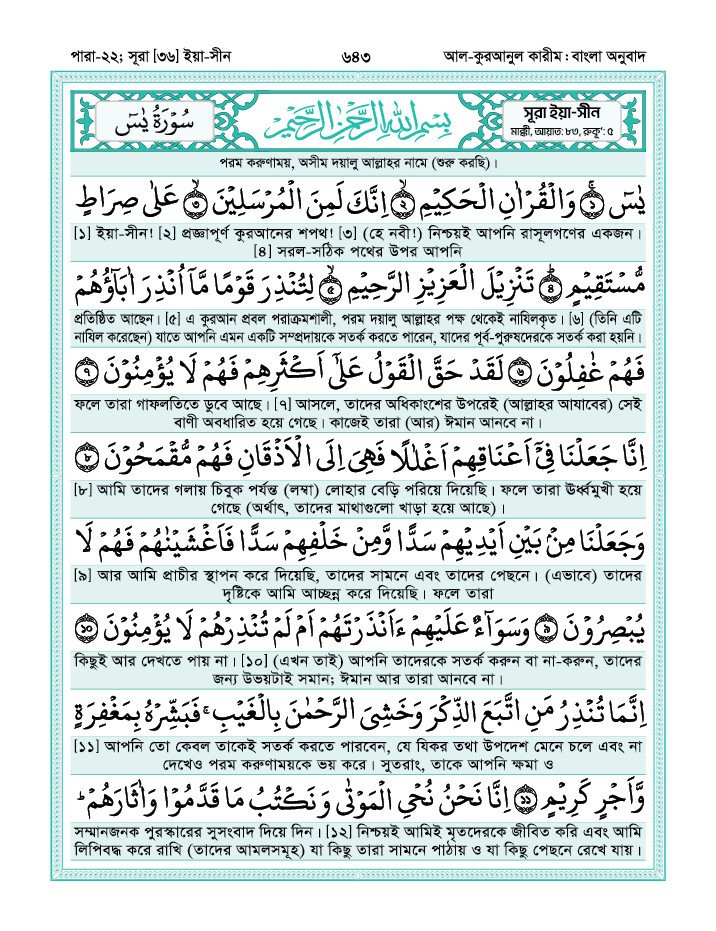 পারা-২২; সূরা [৩৬] ইয়া-সীন ৬৪৩ আল-কুরআনুল কারীম : বাংলা অনুবাদ
سُوْرَةُ يٰسٓ بِسْمِ اللهِ الرَّحْمٰنِ الرَّحِيْمِ সূরা ইয়া-সীন
মাক্কী, আয়াত: ৮৩, রুকূ': ৫
পরম করুণাময়, অসীম দয়ালু আল্লাহর নামে (শুরু করছি)।
يٰسٓ ۚ﴿১﴾ وَالْقُرْاٰنِ الْحَكِيْمِ ﴿২﴾ اِنَّكَ لَمِنَ الْمُرْسَلِيْنَ ﴿৩﴾ عَلٰى صِرَاطٍ
[১] ইয়া-সীন! [২] প্রজ্ঞাপূর্ণ কুরআনের শপথ! [৩] (হে নবী!) নিশ্চয়ই আপনি রাসূলগণের একজন।
[৪] সরল-সঠিক পথের উপর আপনি
مُّسْتَقِيْمٍ ﴿৪﴾ تَنْزِيْلَ الْعَزِيْزِ الرَّحِيْمِ ﴿৫﴾ لِتُنْذِرَ قَوْمًا مَّاۤ اُنْذِرَ اٰبَآؤُهُمْ
প্রতিষ্ঠিত আছেন। [৫] এ কুরআন প্রবল পরাক্রমশালী, পরম দয়ালু আল্লাহর পক্ষ থেকেই নাযিলকৃত। [৬] (তিনি এটি
নাযিল করেছেন) যাতে আপনি এমন একটি সম্প্রদায়কে সতর্ক করতে পারেন, যাদের পূর্ব-পুরুষদেরকে সতর্ক করা হয়নি।
فَهُمْ غٰفِلُوْنَ ﴿৬﴾ لَقَدْ حَقَّ الْقَوْلُ عَلٰۤى اَكْثَرِهِمْ فَهُمْ لَا يُؤْمِنُوْنَ ﴿৭﴾
ফলে তারা গাফলতিতে ডুবে আছে। [৭] আসলে, তাদের অধিকাংশের উপরেই (আল্লাহর আযাবের) সেই
বাণী অবধারিত হয়ে গেছে। কাজেই তারা (আর) ঈমান আনবে না।
اِنَّا جَعَلْنَا فِيْۤ اَعْنَاقِهِمْ اَغْلٰلًا فَهِيَ اِلَى الْاَذْقَانِ فَهُمْ مُّقْمَحُوْنَ ﴿৮﴾
[৮] আমি তাদের গলায় চিবুক পর্যন্ত (লম্বা) লোহার বেড়ি পরিয়ে দিয়েছি। ফলে তারা ঊর্ধ্বমুখী হয়ে
গেছে (অর্থাৎ, তাদের মাথাগুলো খাড়া হয়ে আছে)।
وَجَعَلْنَا مِنْۢ بَيْنِ اَيْدِيْهِمْ سَدًّا وَّمِنْ خَلْفِهِمْ سَدًّا فَاَغْشَيْنٰهُمْ فَهُمْ لَا
[৯] আর আমি প্রাচীর স্থাপন করে দিয়েছি, তাদের সামনে এবং তাদের পেছনে। (এভাবে) তাদের
দৃষ্টিকে আমি আচ্ছন্ন করে দিয়েছি। ফলে তারা
يُبْصِرُوْنَ ﴿৯﴾ وَسَوَآءٌ عَلَيْهِمْ ءَاَنْذَرْتَهُمْ اَمْ لَمْ تُنْذِرْهُمْ لَا يُؤْمِنُوْنَ ﴿১০﴾
কিছুই আর দেখতে পায় না। [১০] (এখন তাই) আপনি তাদেরকে সতর্ক করুন বা না-করুন, তাদের
জন্য উভয়টাই সমান; ঈমান আর তারা আনবে না।
اِنَّمَا تُنْذِرُ مَنِ اتَّبَعَ الذِّكْرَ وَخَشِيَ الرَّحْمٰنَ بِالْغَيْبِ ۚ فَبَشِّرْهُ بِمَغْفِرَةٍ
[১১] আপনি তো কেবল তাকেই সতর্ক করতে পারবেন, যে যিকর তথা উপদেশ মেনে চলে এবং না
দেখেও পরম করুণাময়কে ভয় করে। সুতরাং, তাকে আপনি ক্ষমা ও
وَّاَجْرٍ كَرِيْمٍ ﴿১১﴾ اِنَّا نَحْنُ نُحْيِ الْمَوْتٰى وَنَكْتُبُ مَا قَدَّمُوْا وَاٰثَارَهُمْ ؕ
সম্মানজনক পুরস্কারের সুসংবাদ দিয়ে দিন। [১২] নিশ্চয়ই আমিই মৃতদেরকে জীবিত করি এবং আমি
লিপিবদ্ধ করে রাখি (তাদের আমলসমূহ) যা কিছু তারা সামনে পাঠায় ও যা কিছু পেছনে রেখে যায়।